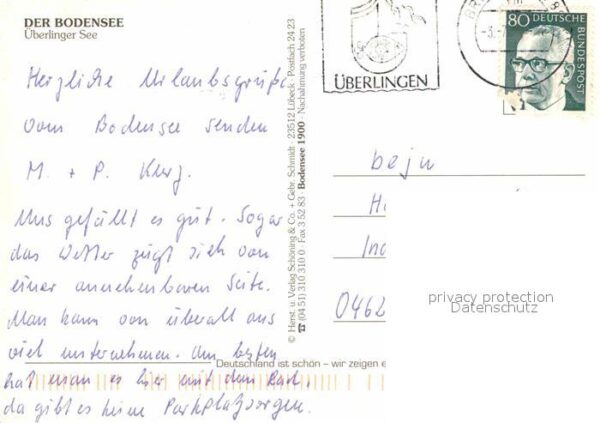 DER BODENSEE
Überlinger See
Herzliche Urlaubsgrüße
vom Bodensee senden
M. + P. Kerz.
Uns gefällt es gut. Sogar
das Wetter zeigt sich von
einer annehmbaren Seite.
Man kann von überall aus
viel unternehmen. Am besten
hat man es hier mit dem Rad,
da gibt es keine Parkplatzsorgen.
© Herst. u. Verlag Schöning & Co. + Gebr. Schmidt · 23512 Lübeck · Postfach 24 23
☎ (04 51) 310 310 0 · Fax 3 52 83 · Bodensee 1900 · Nachahmung verboten
Deutschland ist schön – wir zeigen e
ÜBERLINGEN
80 DEUTSCHE
BUNDESPOST
beju
0462
privacy protection
Datenschutz